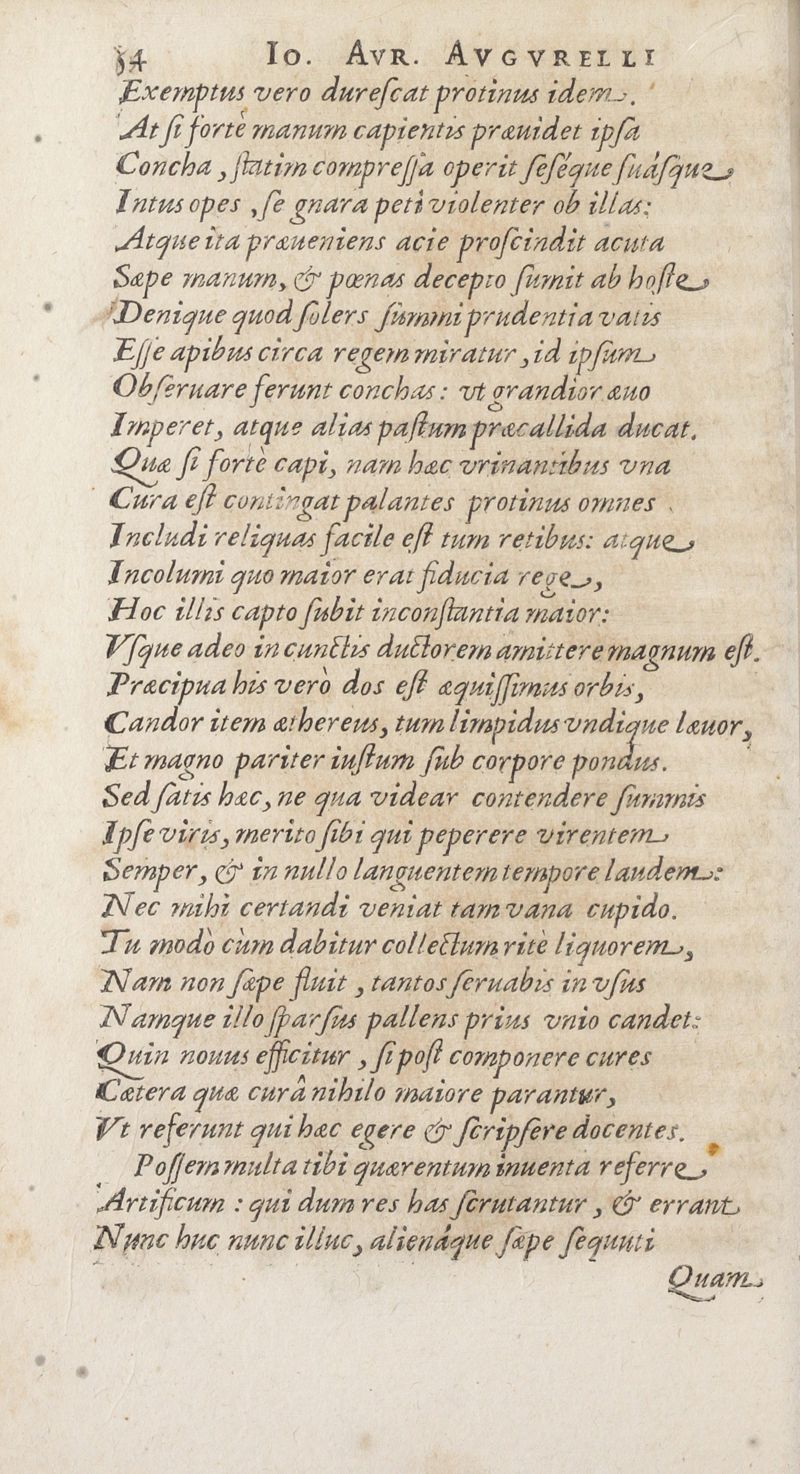 54 Io. AVR. AVGVRELLI
Exemptus vero durescat protinus idem.
At si forte manum capientis præuidet ipsa
Concha, statim compressa operit seséque suásque
Intus opes, se gnara peti violenter ob illas;
Atque ita præueniens acie proscindit acuta
Sæpe manum, & pœnas decepto sumit ab hoste
Denique quod solers summi prudentia vatis
Esse apibus circa regem miratur, id ipsum
Obseruare ferunt conchas: vt grandior æuo
Imperet, atque alias pastum præcallida ducat.
Quæ si forte capi, nam hæc vrinantibus vna
Cura est contingat palantes protinus omnes
Includi reliquas facile est tum retibus: atque
Incolumi quo maior erat fiducia rege,
Hoc illis capto subit inconstantia maior:
Vsque adeo in cunctis ductorem amittere magnum est.
Præcipua his verò dos est æquissimus orbis,
Candor item æthereus, tum limpidus vndique læuor,
Et magno pariter iustum sub corpore pondus.
Sed satis hæc, ne qua videar contendere summis
Ipse viris, merito sibi qui peperere virentem
Semper, & in nullo languentem tempore laudem:
Nec mihi certandi veniat tam vana cupido.
Tu modò cùm dabitur collectum ritè liquorem,
Nam non sæpe fluit, tantos seruabis in vsus
Namque illo sparsus pallens prius vnio candet:
Quin nouus efficitur, si post componere cures
Cætera quæ curâ nihilo maiore parantur,
Vt referunt qui hæc egere & scripsere docentes.
Possem multa tibi quærentum inuenta referre
Artificum : qui dum res has scrutantur, & errant
Nunc huc nunc illuc, alienáque sæpe sequuti
Quam